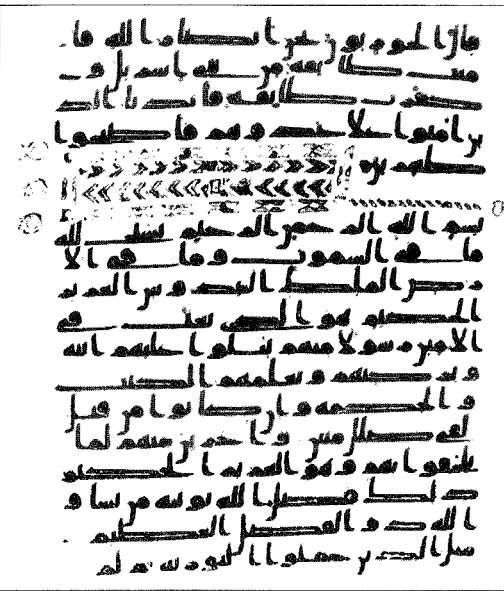 قال الحواريون نحن انصار الله فا
منت طايفة من بني اسريل و
كفرت طايفة فايدنا الذ
ين امنوا على عدوهم فاصبحوا
ظهرين
بسم الله الرحمن الرحيم يسبح لله
ما في السموت وما في الا
رض الملك القدوس العزيز
الحكيم هو الذي بعث في
الامين رسولا منهم يتلوا عليهم ايته
ويزكيهم ويعلمهم الكتب
والحكمة وان كانوا من قبل
لفي ضلل مبين واخرين منهم لما
يلحقوا بهم وهو العزيز الحكيم
ذلك فضل الله يوتيه من يشا و
الله ذو الفضل العظيم
مثل الذين حملوا التورية ثم لم